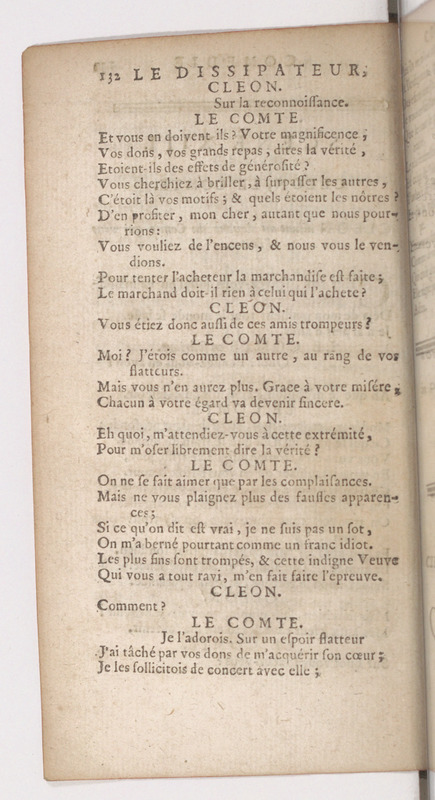 132 LE DISSIPATEUR,
CLEON.
Sur la reconnoissance.
LE COMTE.
Et vous en doivent-ils ? Votre magnificence ;
Vos dons, vos grands repas, dites la vérité,
Etoient-ils des effets de générosité ?
Vous cherchiez à briller, à surpasser les autres,
C'étoit là vos motifs ; & quels étoient les nôtres ?
D'en profiter, mon cher, autant que nous pour-
rions :
Vous vouliez de l'encens, & nous vous le ven-
dions.
Pour tenter l'acheteur la marchandise est faite ;
Le marchand doit-il rien à celui qui l'achete ?
CLEON.
Vous étiez donc aussi de ces amis trompeurs ?
LE COMTE.
Moi ? J'étois comme un autre, au rang de vos
flatteurs.
Mais vous n'en aurez plus. Grace à votre misére ;
Chacun à votre égard va devenir sincere.
CLEON.
Eh quoi, m'attendiez-vous à cette extrémité,
Pour m'oser librement dire la vérité ?
LE COMTE.
On ne se fait aimer que par les complaisances.
Mais ne vous plaignez plus des fausses apparen-
ces ;
Si ce qu'on dit est vrai, je ne suis pas un sot,
On m'a berné pourtant comme un franc idiot.
Les plus fins sont trompés, & cette indigne Veuve
Qui vous a tout ravi, m'en fait faire l'épreuve.
CLEON.
Comment ?
LE COMTE.
Je l'adorois. Sur un espoir flatteur
J'ai tâché par vos dons de m'acquérir son cœur ;
Je les sollicitois de concert avec elle ;